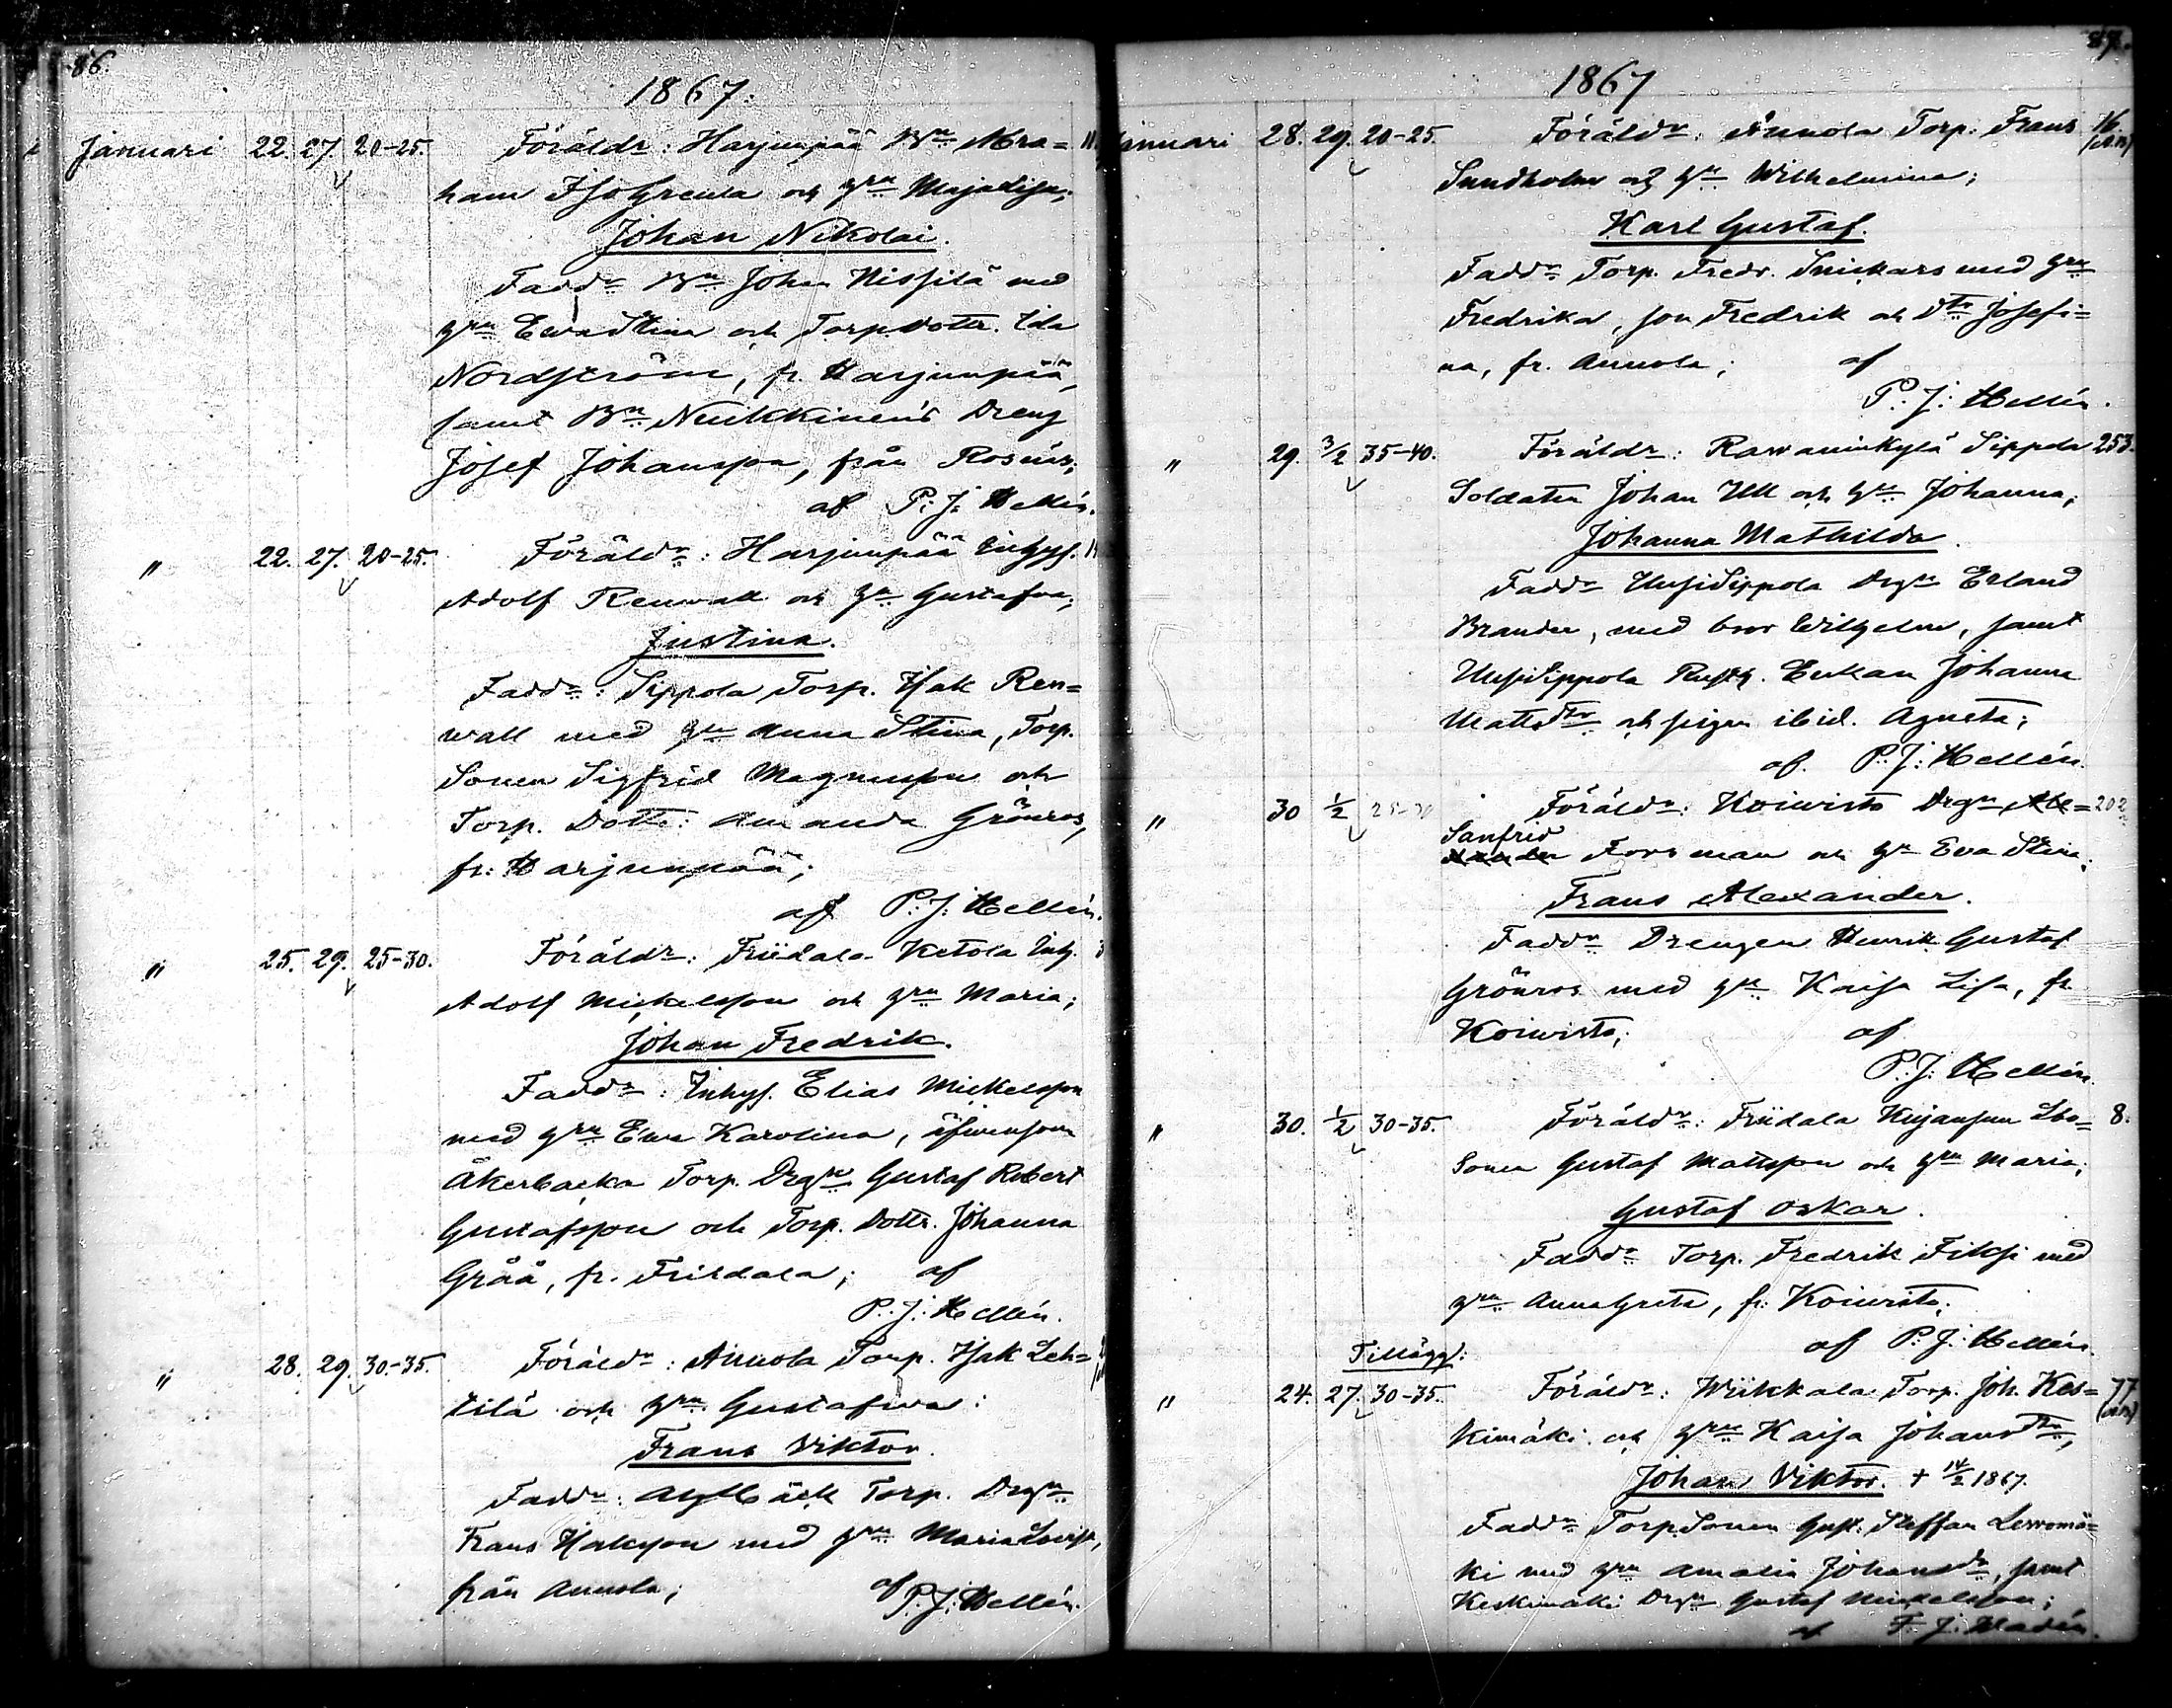 86.
1867.
Januari 22. 27. 20-25. Föräldr: Harjunpää Bn Abra=
ham Iso Greula och hru Maja Lisa;
Johan Nikolai.
Faddr Bn Johan Nissilä med
hru Ewa Stina och Torp.dottr. Ida
Nordström, fr. Harjunpää,
samt Bn Nuikkinens Dreng
Josef Johansson, från Rosnäs;
af P. J. Hellén.
" 22. 27. 20-25. Föräldr: Harjunpää Inhys.
Adolf Renwall och hu Gustafva;
Justina.
Faddr: Sippola Torp. Isak Ren=
wall med hru Anna Stina, Torp.
Sonen Sigfrid Magnusson och
Torp. Dottr: Amanda Grönroos,
fr. Harjunpää;
af P. J. Hellén.
" 25. 29. 25-30. Föräldr: Friidala Ketola Inh.
Adolf Mickelsson och hru Maria;
Johan Fredrik.
Faddr: Inhys. Elias Mickelsson
med hru Ewa Karolina, äfvensom
Åkerbacka Torp. Drgn Gustaf Robert
Gustafsson och Torp. Dottr. Johanna
Gråå, fr. Friidala; af
P. J. Hellén.
" 28. 29. 30-35. Föräldr: Annola Torp. Isak Leh=
tilä och hru Gustafwa:
Frans Viktor.
Faddr: Torp. Drgn
Frans med hru Maria Lovis,
från Annola; af P. J. Hellén.
87.
1867
Januari 28. 29. 20-25. Föräldr: Annola Torp. Frans 16.
Sundholm och hu Wilhelmina;
Karl Gustaf.
Faddr Torp. Fredr. Snickars med hru
Fredrika, son Fredrik och dtr Josefi=
na, fr. Annola; af
P. J. Hellén.
" 29. 3/2 35-40. Föräldr: Rawaninkylä Sippola 253.
Soldaten Johan Ull och hu Johanna;
Johanna Mathilda.
Faddr UusiSippola Drgn Erland
Brander, med bror Wilhelm, samt
UusiSippola Rusth. Enkan Johanna
Mattsdtr och pigan ibid. Agneta;
af P. J. Hellén.
" 30 1/2 25-30 Föräldr: Koiwisto Drgn Ale= 202
Sanfrid
xander Forsman och hu Eva Stina;
Frans Alexander.
Faddr Drengen Henrik Gustaf
Grönroos med hru Kaisa Lisa, fr.
Koiwisto; af
P. J. Hellén.
" 30. 1/2 30-35. Föräldr: Friidala Kujansuu Lbo= 8.
Sonen Gustaf Mattsson och hru Maria;
Gustaf Oskar.
Faddr Torp. Fredrik Fiksi med
hru Anna Greta, fr. Koiwisto;
af P. J. Hellén.
Tillägg:
" 24. 27. 30-35. Föräldr: Wiikkala Torp. Joh. Kes= 77
kimäki och hru Kaisa Johansdtr;
Johan Viktor. † 14/2 1867.
Faddr TorpSonen Gust. Staffan Lewomä=
ki med hru Amalia Johansdr, samt
Keskimäki Drgn Gustaf Mickelsson;
af F. J.